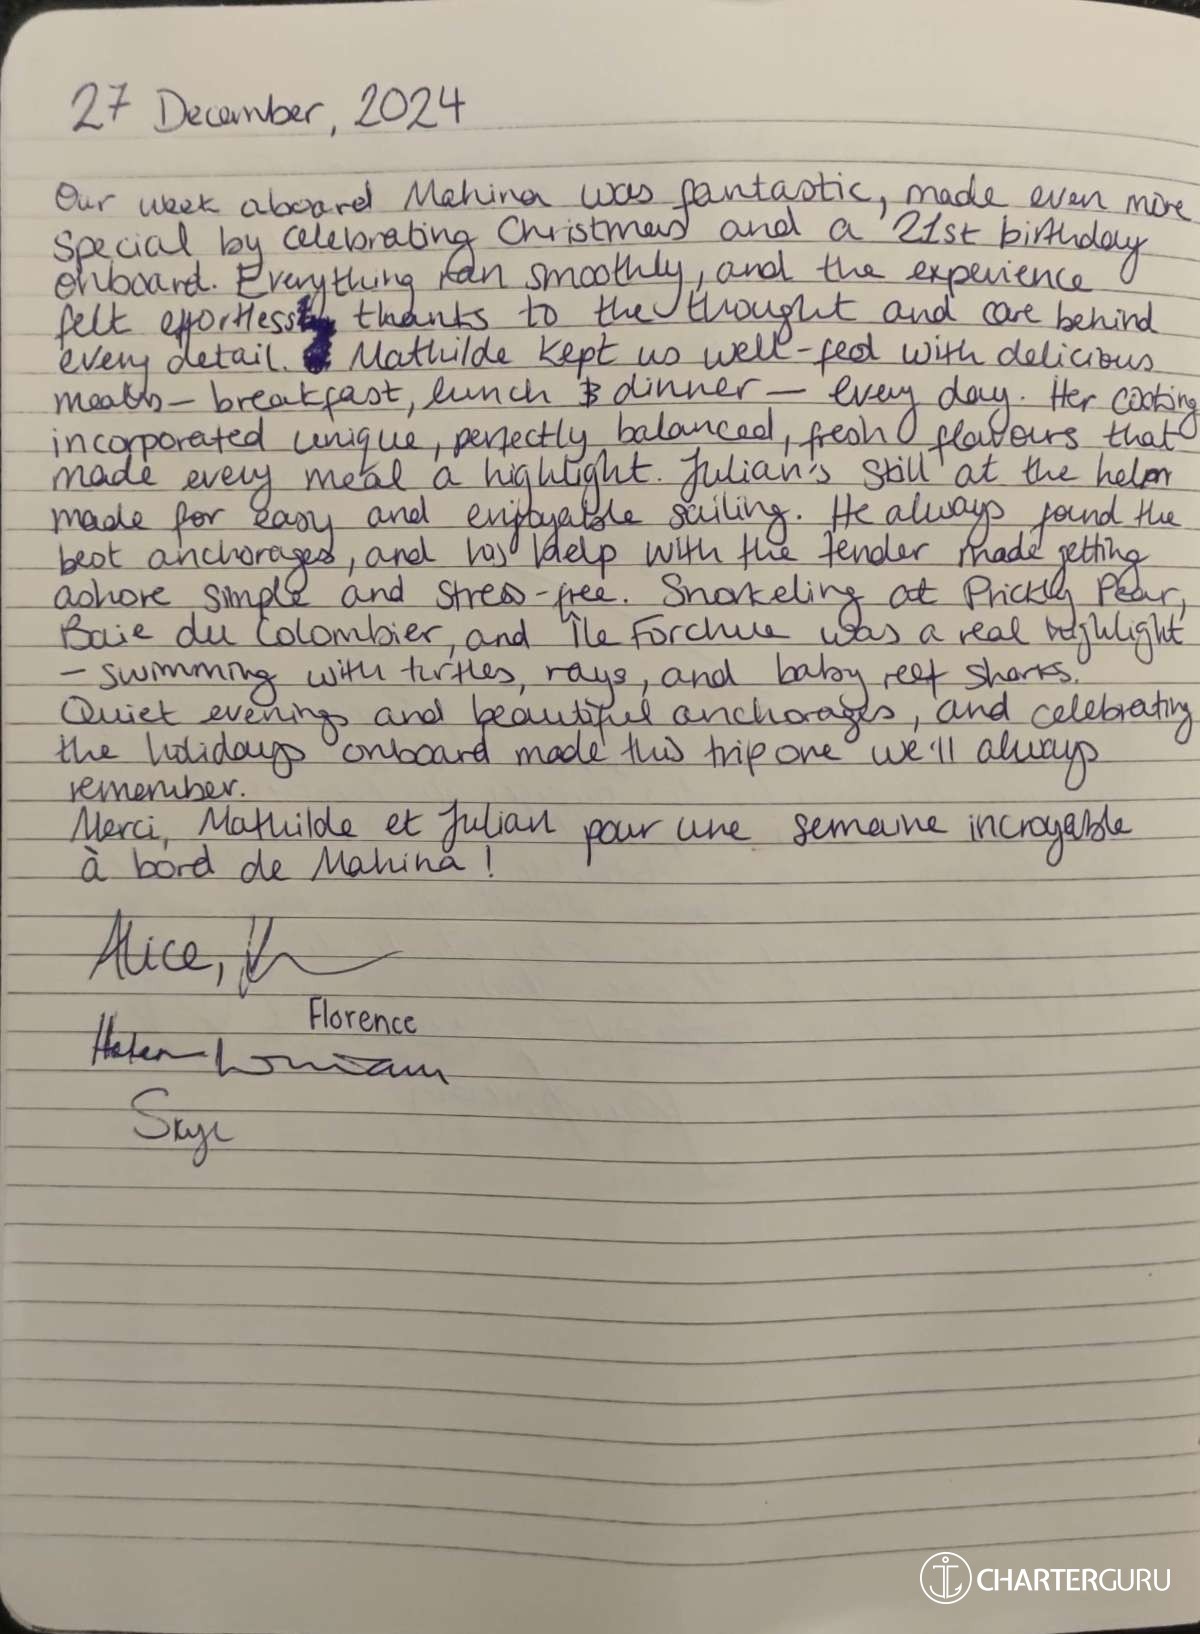 27 December, 2024
Our week aboard Mahina was fantastic, made even more
special by celebrating Christmas and a 21st birthday
onboard. Everything ran smoothly, and the experience
felt effortless thanks to the thought and care behind
every detail. Mathilde kept us well-fed with delicious
meals — breakfast, lunch & dinner — every day. Her cooking
incorporated unique, perfectly balanced, fresh flavours that
made every meal a highlight. Julian's skill at the helm
made for easy and enjoyable sailing. He always found the
best anchorages, and his help with the tender made getting
ashore simple and stress-free. Snorkeling at Prickly Pear,
Baie du Colombier, and Île Forchue was a real highlight
— swimming with turtles, rays, and baby reef sharks.
Quiet evenings and beautiful anchorages, and celebrating
the holidays onboard made this trip one we'll always
remember.
Merci, Mathilde et Julian pour une semaine incroyable
à bord de Mahina!
Alice,
Florence
Helen
Skye
CHARTERGURU